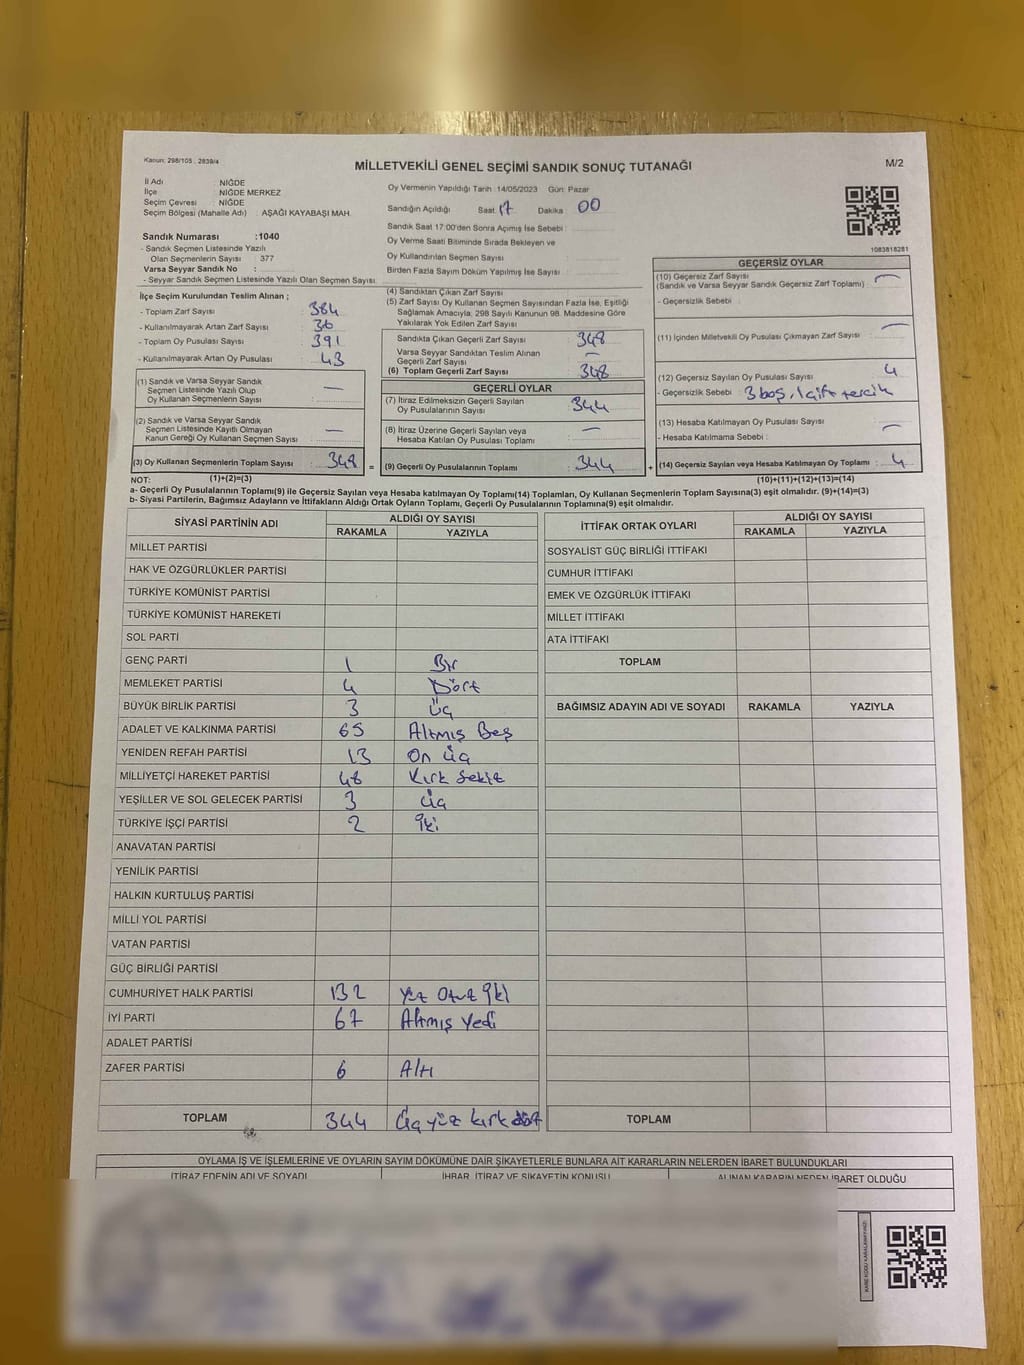 Kanun: 298/105 , 2839/4
MİLLETVEKİLİ GENEL SEÇİMİ SANDIK SONUÇ TUTANAĞI
M/2
İl Adı : NİĞDE
İlçe : NİĞDE MERKEZ
Seçim Çevresi : NİĞDE
Seçim Bölgesi (Mahalle Adı) : AŞAĞI KAYABAŞI MAH.
Oy Vermenin Yapıldığı Tarih :14/05/2023 Gün: Pazar
Sandığın Açıldığı Saat: 17 Dakika : 00
Sandık Saat 17:00'den Sonra Açımış İse Sebebi :
Oy Verme Saati Bitiminde Sırada Bekleyen ve
Oy Kullandırılan Seçmen Sayısı
Birden Fazla Sayım Döküm Yapılmış İse Sayısı :
1083818281
Sandık Numarası :1040
- Sandık Seçmen Listesinde Yazılı
Olan Seçmenlerin Sayısı : 377
Varsa Seyyar Sandık No :
- Seyyar Sandık Seçmen Listesinde Yazılı Olan Seçmen Sayısı
İlçe Seçim Kurulundan Teslim Alınan ;
- Toplam Zarf Sayısı 384
- Kullanılmayarak Artan Zarf Sayısı 36
- Toplam Oy Pusulası Sayısı 391
- Kullanılmayarak Artan Oy Pusulası 43
(1) Sandık ve Varsa Seyyar Sandık
Seçmen Listesinde Yazılı Olup
Oy Kullanan Seçmenlerin Sayısı : —
(2) Sandık ve Varsa Seyyar Sandık
Seçmen Listesinde Kayıtlı Olmayan
Kanun Gereği Oy Kullanan Seçmen Sayısı : —
(3) Oy Kullanan Seçmenlerin Toplam Sayısı 348 =
(4) Sandıktan Çıkan Zarf Sayısı
(5) Zarf Sayısı Oy Kullanan Seçmen Sayısından Fazla İse, Eşitliği
Sağlamak Amacıyla, 298 Sayılı Kanunun 98. Maddesine Göre
Yakılarak Yok Edilen Zarf Sayısı
Sandıkta Çıkan Geçerli Zarf Sayısı 348
Varsa Seyyar Sandıktan Teslim Alınan
Geçerli Zarf Sayısı —
(6) Toplam Geçerli Zarf Sayısı 348
GEÇERLİ OYLAR
(7) İtiraz Edilmeksizin Geçerli Sayılan
Oy Pusulalarının Sayısı 344
(8) İtiraz Üzerine Geçerli Sayılan veya
Hesaba Katılan Oy Pusulası Toplamı —
(9) Geçerli Oy Pusulalarının Toplamı : 344 +
GEÇERSİZ OYLAR
(10) Geçersiz Zarf Sayısı
(Sandık ve Varsa Seyyar Sandık Geçersiz Zarf Toplamı) —
- Geçersizlik Sebebi :
(11) İçinden Milletvekili Oy Pusulası Çıkmayan Zarf Sayısı —
(12) Geçersiz Sayılan Oy Pusulası Sayısı 4
- Geçersizlik Sebebi : 3 boş, 1 çift tercih
(13) Hesaba Katılmayan Oy Pusulası Sayısı —
- Hesaba Katılmama Sebebi :
(14) Geçersiz Sayılan veya Hesaba Katılmayan Oy Toplamı : 4
NOT: (1)+(2)=(3) (10)+(11)+(12)+(13)=(14)
a- Geçerli Oy Pusulalarının Toplamı(9) ile Geçersiz Sayılan veya Hesaba katılmayan Oy Toplamı(14) Toplamları, Oy Kullanan Seçmenlerin Toplam Sayısına(3) eşit olmalıdır. (9)+(14)=(3)
b- Siyasi Partilerin, Bağımsız Adayların ve İttifakların Aldığı Ortak Oyların Toplamı, Geçerli Oy Pusulalarının Toplamına(9) eşit olmalıdır.
SİYASİ PARTİNİN ADI ALDIĞI OY SAYISI
RAKAMLA YAZIYLA
MİLLET PARTİSİ
HAK VE ÖZGÜRLÜKLER PARTİSİ
TÜRKİYE KOMÜNİST PARTİSİ
TÜRKİYE KOMÜNİST HAREKETİ
SOL PARTİ
GENÇ PARTİ 1 Bir
MEMLEKET PARTİSİ 4 Dört
BÜYÜK BİRLİK PARTİSİ 3 Üç
ADALET VE KALKINMA PARTİSİ 65 Altmış Beş
YENİDEN REFAH PARTİSİ 13 On üç
MİLLİYETÇİ HAREKET PARTİSİ 48 Kırk Sekiz
YEŞİLLER VE SOL GELECEK PARTİSİ 3 Üç
TÜRKİYE İŞÇİ PARTİSİ 2 İki
ANAVATAN PARTİSİ
YENİLİK PARTİSİ
HALKIN KURTULUŞ PARTİSİ
MİLLİ YOL PARTİSİ
VATAN PARTİSİ
GÜÇ BİRLİĞİ PARTİSİ
CUMHURİYET HALK PARTİSİ 132 Yüz Otuz İki
İYİ PARTİ 67 Altmış Yedi
ADALET PARTİSİ
ZAFER PARTİSİ 6 Altı
TOPLAM 344 Üç yüz kırk dört
İTTİFAK ORTAK OYLARI ALDIĞI OY SAYISI
RAKAMLA YAZIYLA
SOSYALİST GÜÇ BİRLİĞİ İTTİFAKI
CUMHUR İTTİFAKI
EMEK VE ÖZGÜRLÜK İTTİFAKI
MİLLET İTTİFAKI
ATA İTTİFAKI
TOPLAM
BAĞIMSIZ ADAYIN ADI VE SOYADI RAKAMLA YAZIYLA
TOPLAM
OYLAMA İŞ VE İŞLEMLERİNE VE OYLARIN SAYIM DÖKÜMÜNE DAİR ŞİKAYETLERLE BUNLARA AİT KARARLARIN NELERDEN İBARET BULUNDUKLARI
İTİRAZ EDENİN ADI VE SOYADI İHBAR, İTİRAZ VE ŞİKAYETİN KONUSU ALINAN KARARIN NEDEN İBARET OLDUĞU